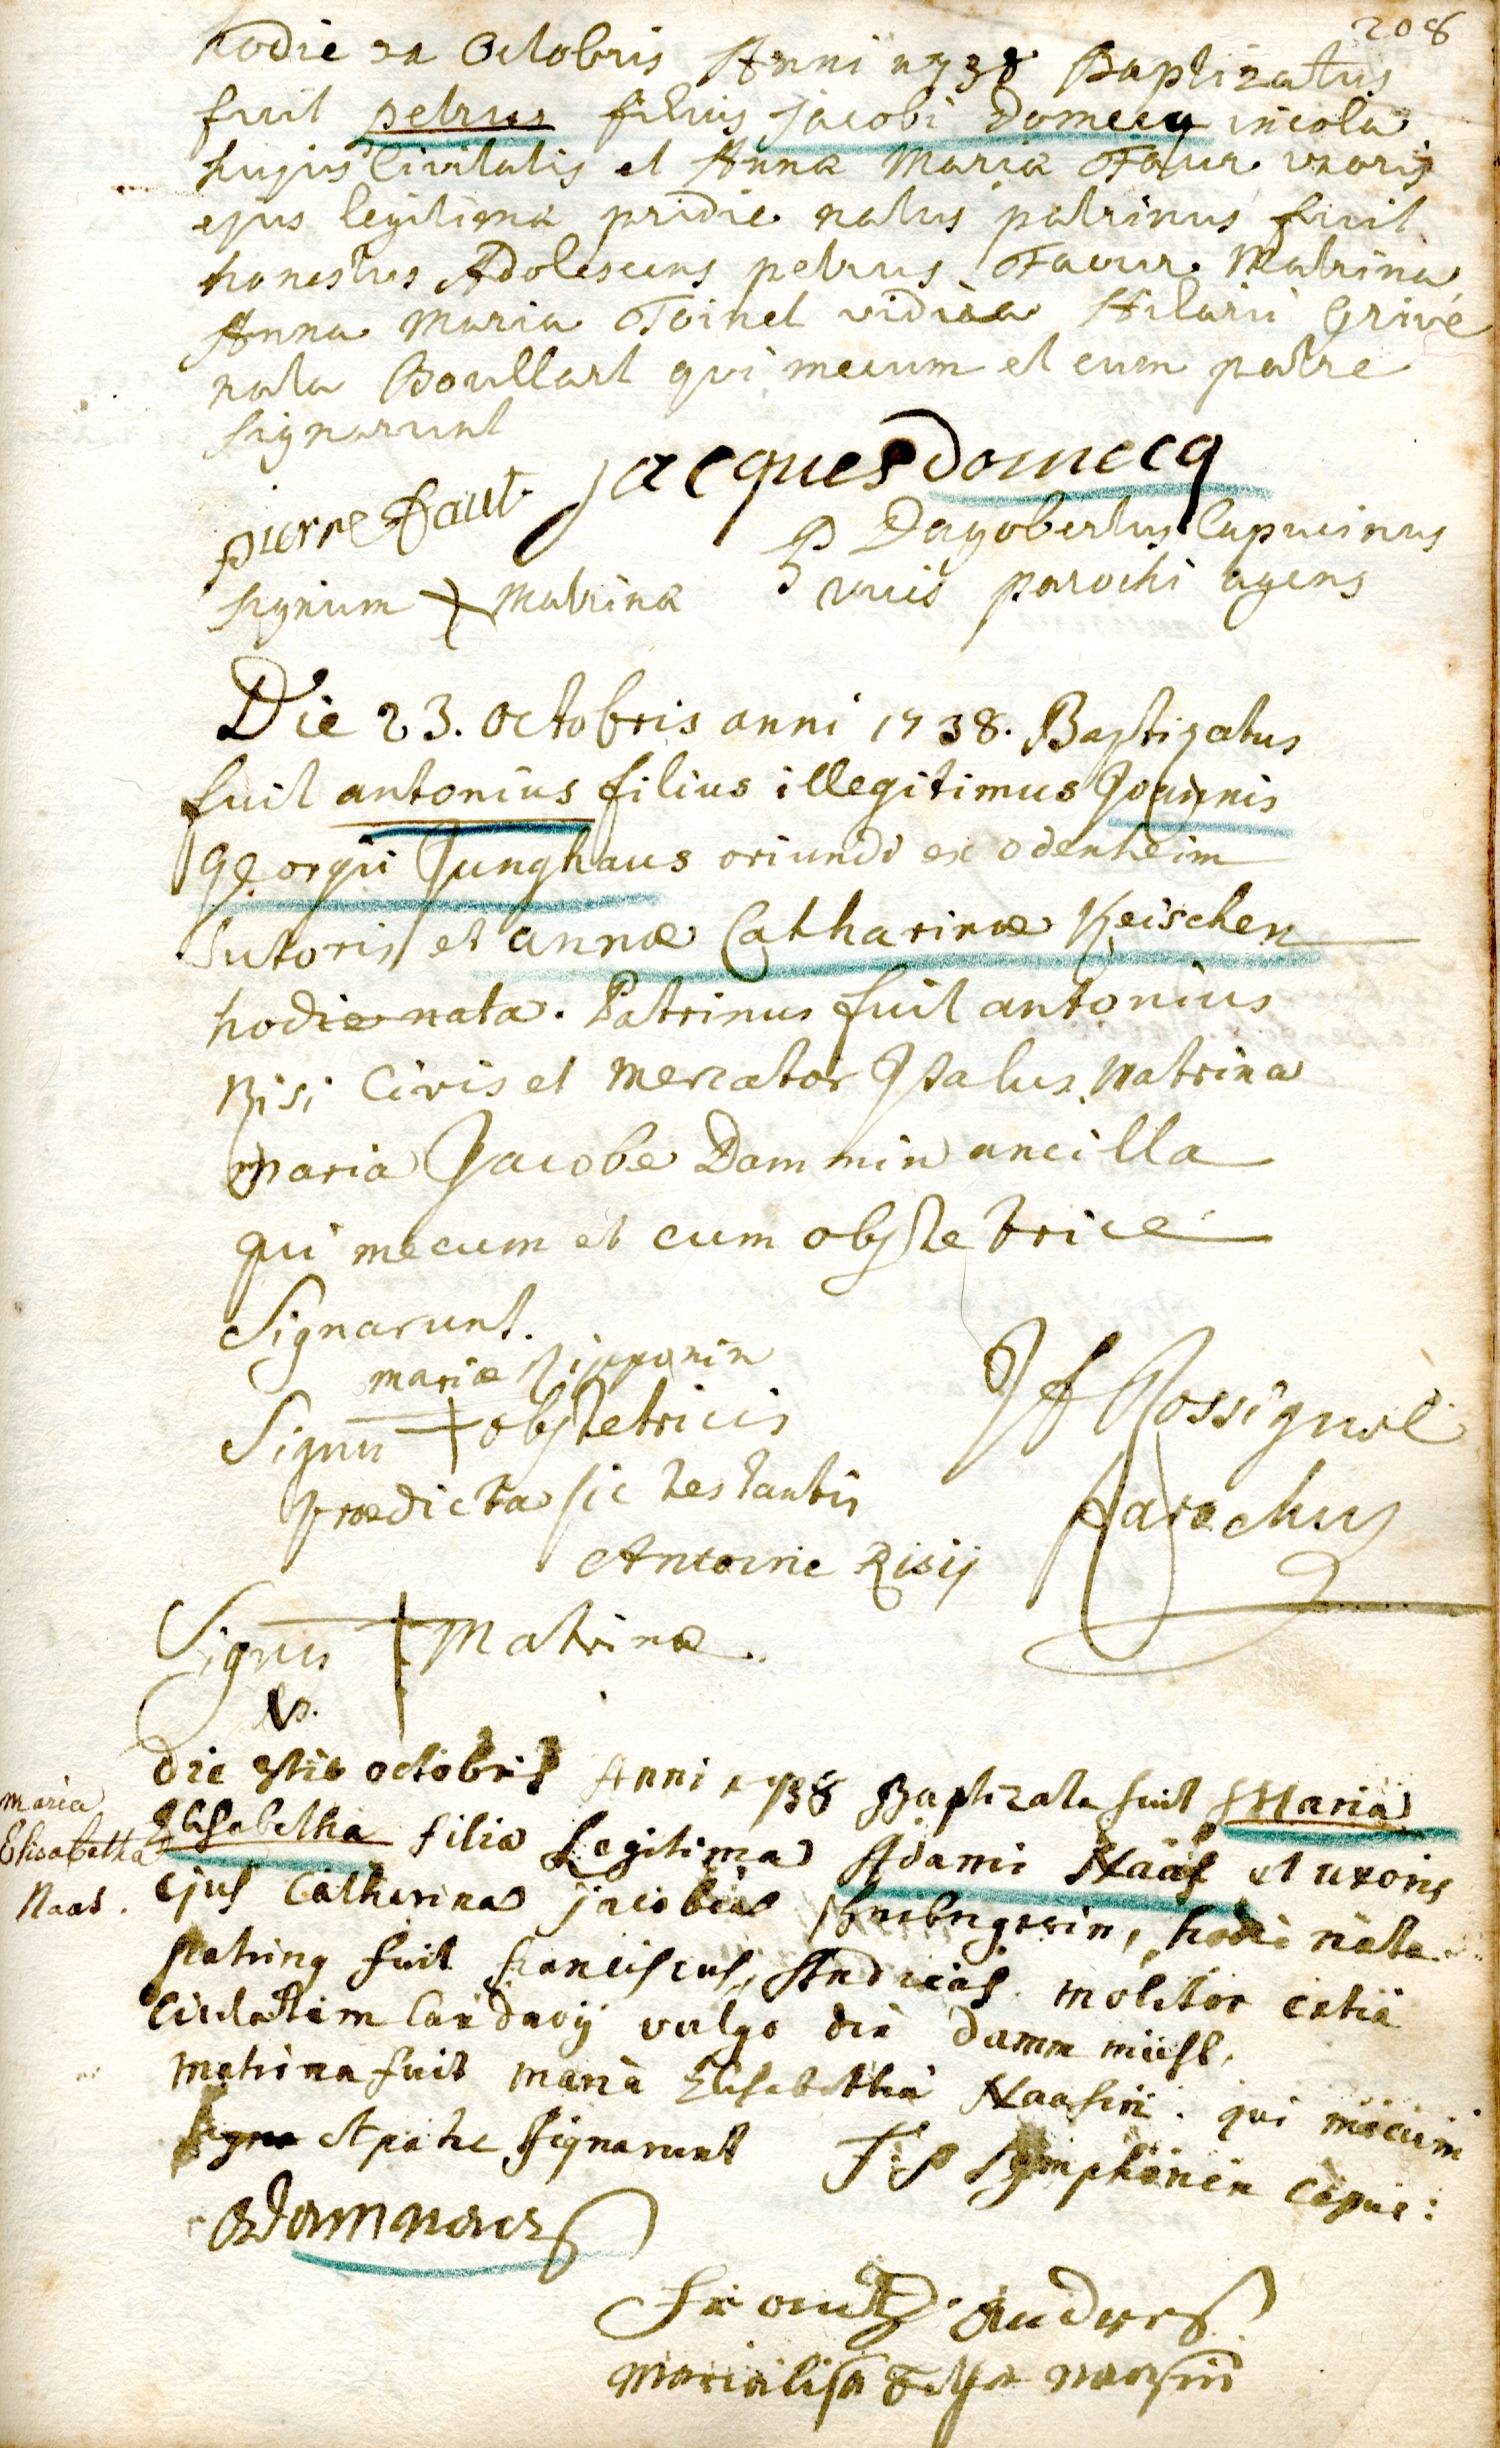 208
hodie 22 Octobris Anni 1738 Baptizatus
fuit petrus filius jacobi Domecq incola
hujus Civitatis et Anna Maria Faur uxoris
ejus legitima pridie natus patrinus fuit
honestus Adolescens petrus Faur Matrina
Anna Maria Toinet vidua Hilarii Grivé
nata Boullart qui mecum et cum patre
signarunt
jacques Domecq
pierre faut
P Dagobertus Capucinus
signum + Matrina
vices parochi agens
Die 23. octobris anni 1738. Baptizatus
fuit antonius filius illegitimus Joannis
Georgii Junghaus oriundi ex odenheim
Sutoris et annæ Catharinæ Keischen
hodie nata. Patrinus fuit antonius
Risi Civis et Mercator Italus Matrina
Maria Jacobe Dammin ancilla
qui mecum et cum obstetrice
Signarunt.
mariæ
Signū + obstetricis
prædicta sic testantis
J F Rossignol
Parochus
Antoine Risij
Signū + Matrinæ.
Die octobris Anni 1738 Baptizata fuit Maria
Elisabetha filia Legitima Adami Naas et uxoris
maria
Elisabetha
Naas.
ejus Catherina jacobea hodie nata
patrinq fuit franciscus Andreas molitor extra
Civitatem Landavij vulgo die Damm
matrina fuit maria Elisabetha Naasin. qui mecum
et patre signarunt
F: P Symphorien Capuc:
Adam naas
Frantz Andres